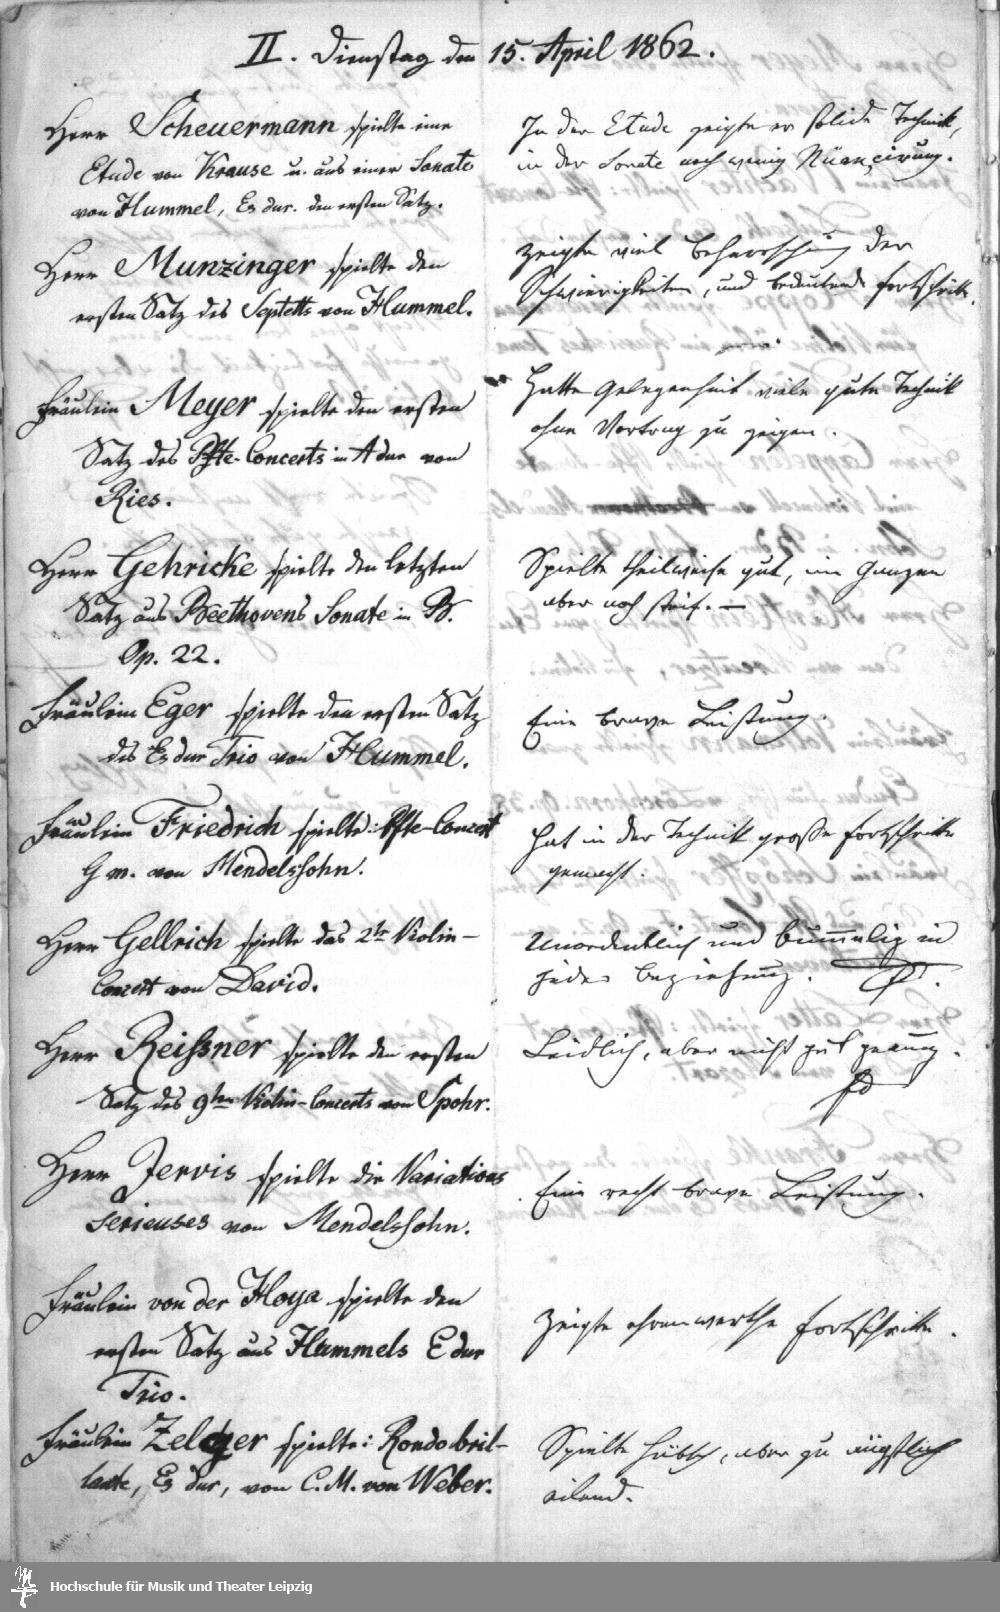 II. Dienstag den 15. April 1862.
Herr Scheuermann spielte eine
Etude von Krause u. aus einer Sonate
von Hummel, Es dur. den ersten Satz.
In der Etude zeigte er solide Technik,
in der Sonate noch wenig Nüancirung.
Herr Munzinger spielte den
ersten Satz des Septetts von Hummel.
Zeigte viel Beherrschung der
Schwierigkeiten, und bedeutende Fortschritte.
Fräulein Meyer spielte den ersten
Satz des Pfte-Concerts in A dur von
Ries.
Hatte Gelegenheit viele gute Technik
ohne Vortrag zu zeigen.
Herr Gehricke spielte den letzten
Satz aus Beethovens Sonate in B.
Op. 22.
Spielte theilweise gut, im Ganzen
aber noch steif. –
Fräulein Eger spielte den ersten Satz
des Es dur Trio von Hummel.
Eine brave Leistung.
Fräulein Friedrich spielte: Pfte-Concert
G m. von Mendelssohn.
Hat in der Technik große Fortschritte
gemacht.
Herr Gellrich spielte das 2te Violin-
Concert von David.
Unordentlich und bummelig in
jeder Beziehung.
Herr Reißner spielte den ersten
Satz des 9ten Violin-Concerts von Spohr.
Leidlich, aber nicht gut genug.
Herr Jervis spielte die Variations
serieuses von Mendelssohn.
Eine recht brave Leistung.
Fräulein von der Hoya spielte den
ersten Satz aus Hummels E dur
Trio.
Zeigte ehrenwerthe Fortschritte.
Fräulein Zelger spielte: Rondo bril-
lante, Es dur, von C. M. von Weber.
Spielte hübsch, aber zu ängstlich
eilend.
Hochschule für Musik und Theater Leipzig